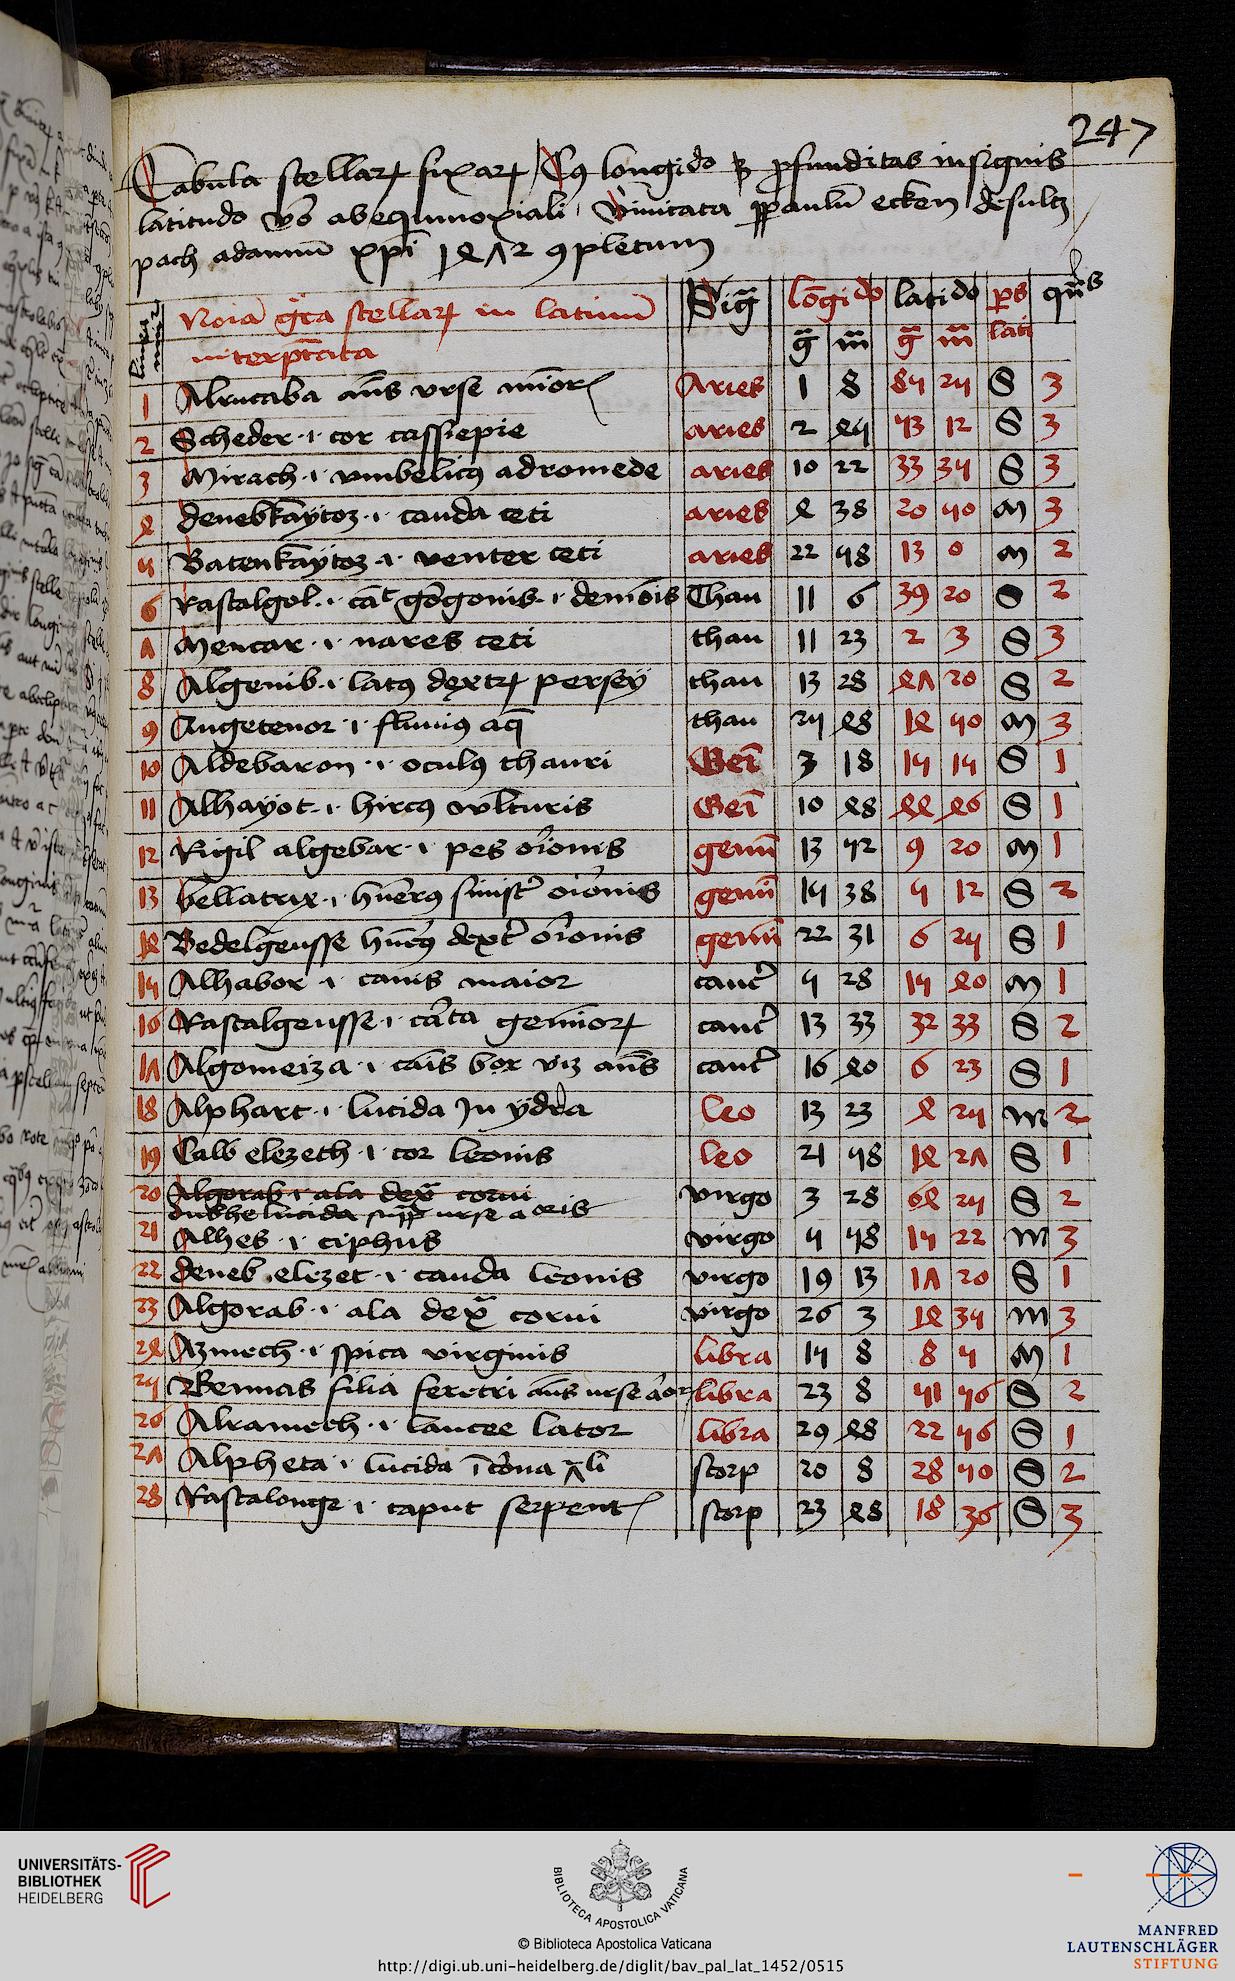 247
Tabula stellarꝝ fixarꝝ Cꝰ longido ⁊ ꝓfunditas in signis
latitudo vō ab equinoxiali vīnitata ꝑ paulū ecken de sultz
pach ad annū xpī 1472 ꝯpletum
Noīa g̃ca stellarꝝ in latinū Sig̃ lōgido latido ps qn̄s
interp̄tata g̃ m̃ g̃ m̃ lati
1 Alrucaba an̄s vrse mīorꝭ Aries 1 8 85 25 S 3
2 Scheder ·i· cor cassiepie aries 2 45 53 12 S 3
3 Mirach ·i· vmbelicꝰ adromede aries 10 22 33 35 S 3
4 denebkaytoz ·i· cauda ceti aries 4 38 20 50 M 3
5 Batenkaytoz ·i· venter ceti aries 22 58 13 0 M 2
6 Rastalgol ·i· cat̄ gōgonis ·i· demōis Thau 11 6 39 20 S 2
7 Mencar ·i· nares ceti thau 11 23 2 3 S 3
8 Algenib ·i· latꝰ dextꝝ persey thau 13 28 47 20 S 2
9 Angetenor ·i· fluuiꝰ aq̄ thau 25 48 14 50 M 3
10 Aldebaron ·i· oculꝰ thauri Gēī 3 18 15 15 S 1
11 Alhayot ·i· hircꝰ vlturis Gēī 10 48 44 46 S 1
12 Rigil algebar ·i· pes oīonis gemī 13 52 9 20 M 1
13 bellatrix ·i· hūerꝰ sinistꝰ orīonis gemī 15 38 5 12 S 2
14 Bedelgeusse hūerꝰ dextꝰ orīonis gemī 22 31 6 25 S 1
15 Alhabor ·i· canis maior cancꝰ 5 28 15 40 M 1
16 Rastalgeusse ·i· cāita gemīorꝝ cancꝰ 13 33 32 33 S 2
17 Algomeiza ·i· cāis bor viz an̄s cancꝰ 16 40 6 23 S 1
18 Alphart ·i· lucida In ydra leo 13 23 4 25 M 2
19 Calb elezeth ·i· cor leonis leo 21 58 14 27 S 1
20 Algorab ·i· ala dex̃ corui virgo 3 28 64 25 S 2
dubhe lucida sup̄ urse aoris
21 Alhes ·i· ciphus virgo 5 58 15 22 M 3
22 deneb elezet ·i· cauda leonis virgo 19 13 17 20 S 1
23 Algorab ·i· ala dex̃ corui virgo 26 3 14 35 M 3
24 Azmech ·i· spica virginis libra 15 8 8 5 M 1
25 Bennas filia feretri an̄s urse āor libra 23 8 51 56 S 2
26 Alramech ·i· lancee lator libra 29 48 22 56 S 1
27 Alpheta ·i· lucida ī corōna scorp 20 8 28 50 S 2
28 Rastalonge ·i· caput serpentꝭ scorp 23 48 18 36 S 3
UNIVERSITÄTS-
BIBLIOTHEK
HEIDELBERG
BIBLIOTECA APOSTOLICA VATICANA
© Biblioteca Apostolica Vaticana
http://digi.ub.uni-heidelberg.de/diglit/bav_pal_lat_1452/0515
MANFRED
LAUTENSCHLÄGER
STIFTUNG